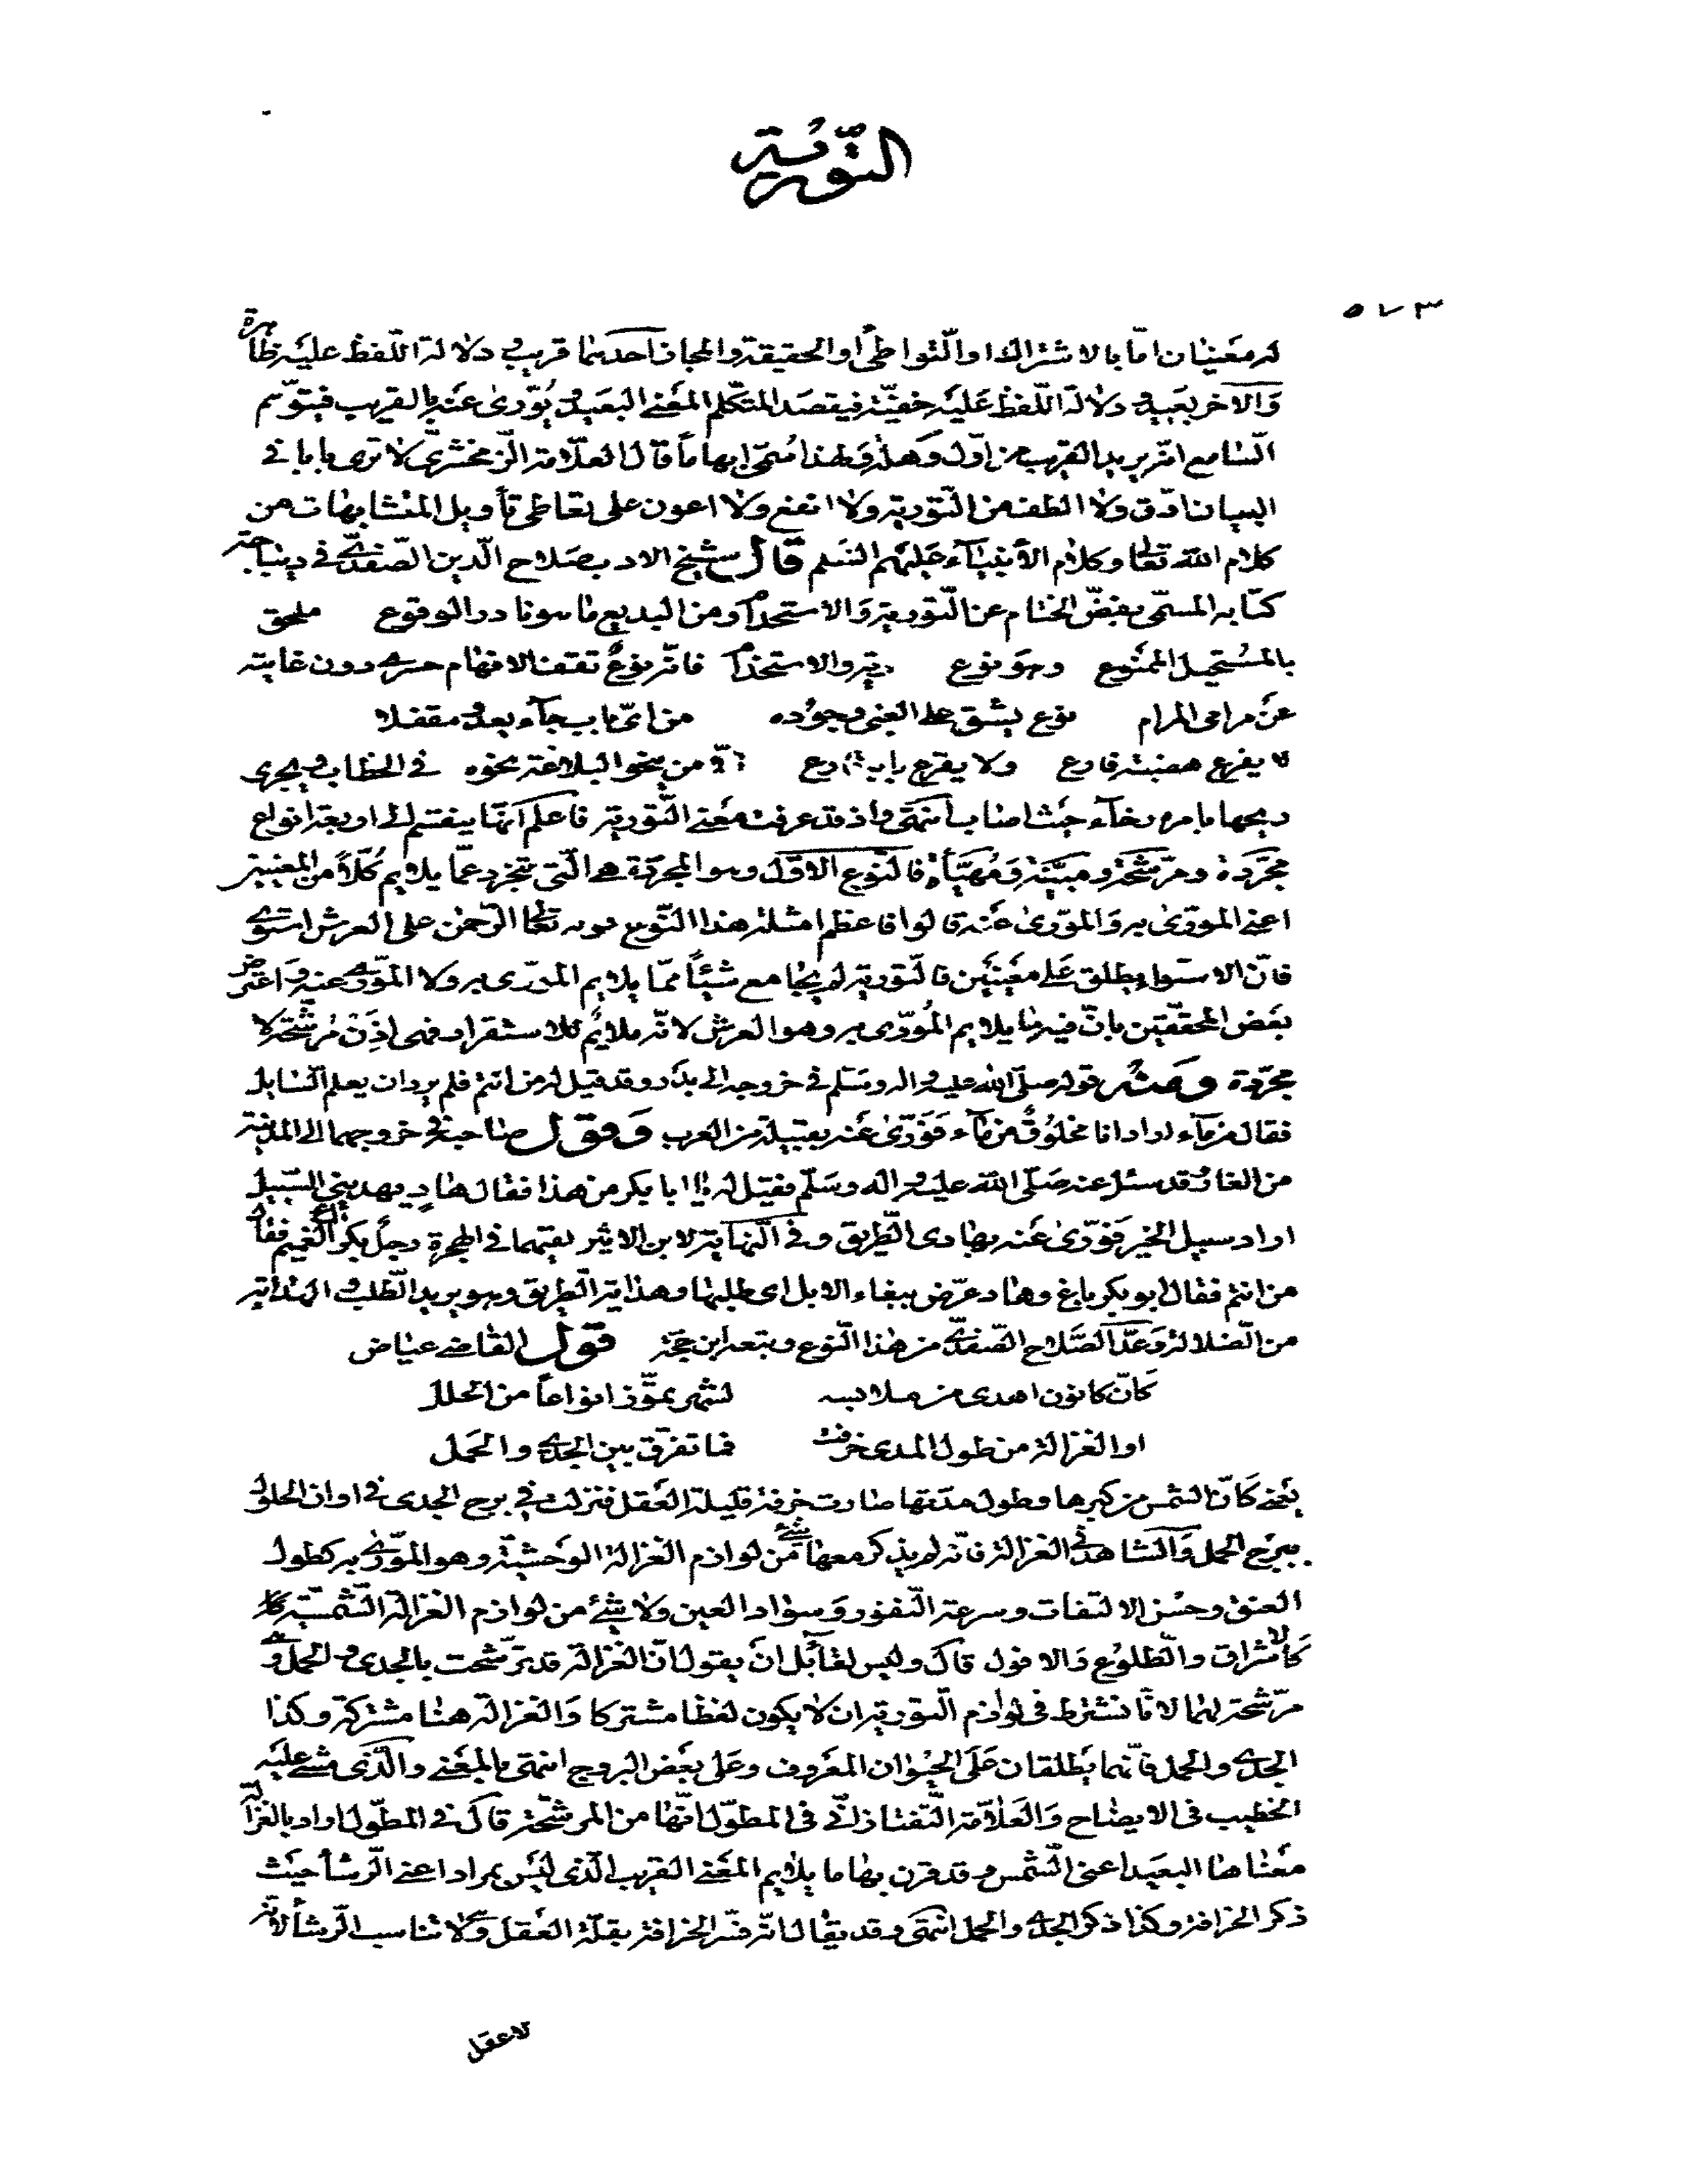 التّورية
٥٧٣
له معنيان امّا بالاشتراك او التّواطئ او الحقيقة والمجاز احدهما قريب و دلالة اللّفظ عليه ظاهرة
والآخر بعيد و دلالة اللّفظ عليه خفيّة فيقصد المتكلّم المعنى البعيد و يورّى عنه بالقريب فيتوهّم
السّامع انّه يريد القريب من اوّل وهلة ولهذا سُمّى ايهاماً قال العلّامة الزّمخشرىّ لا ترى بابا فى
البيان ادّق ولا الطف من التّورية ولا انفع ولا اعون على تعاطى تأويل المتشابهات من
كلام الله تعالى وكلام الأنبيآء عليهم السّلم قال شيخ الادب صلاح الدّين الصّفدىّ فى ديباجة
كتابه المسمّى بفضّ الختام عن التّورية والاستخدام ومن البديع ما هو نادر الوقوع ملحق
بالمستحيل الممنوع وهو نوع والاستخدام فانّه نوعٌ تقف الافهام حسرى دون غايته
عن مرامى المرام نوع يشق على الغبى وجوده من اىّ باب جآء يغدو مقفلا
لا يفرع هضبته فارع ولا يقرع بابه قارع من نحو البلاغة نحوه فى الخطاب و يجرى
ريحها بامره رخآء حيث اصاب انتهى واذ قد عرفت معنى التّورية فاعلم انّها ينقسم الى اربعة انواع
مجرّدة ومرشّحة ومبيّنة ومهيّأة فالنّوع الاوّل وهو المجرّدة هى الّتى تتجرّد عمّا يلايم كلّاً من المعنيين
اعنى المورّى به والمورّى عنه قالوا فاعظم امثلة هذا النّوع قوله تعالى الرّحمن على العرش استوى
فانّ الاستواء يطلق على معنيين فالتّورية لم يجامع شيئاً ممّا يلايم المورّى به ولا المورّى عنه واعترض
بعض المحقّقين بانّ فيه ما يلايم المورّى به وهو العرش لانّه ملايم للاستقرار فهى اذن مرشّحة لا
مجرّدة ومنه قوله صلّى الله عليه و اله وسلّم فى خروجه الى بدر وقد قيل له من انتم فلم يرد ان يعلم السّايل
فقال من مآء اراد انا مخلوقٌ من مآء فورّى عنه بقبيلة من العرب وقول صاحبه فى خروجهما الى المدينة
من الغار و قد سئل عنه صلّى الله عليه و اله وسلّم فقيل له يا ابا بكر من هذا فقال هادٍ يهدينى السّبيل
اراد سبيل الخير فورّى عنه بهادى الطّريق وفى النّهاية لابن الاثير لقيهما فى الهجرة رجل بكراع الغميم فقال
من انتم فقال ابو بكر باغ وهاد عرّض ببغاء الابل اى طلبها وهداية الطّريق وهو يريد الطّلب و الهداية
من الضّلالة وعدّ الصّلاح الصّفدىّ من هذا النّوع وتبعه ابن حجّة قول القاضى عياض
كانّ كانون اهدى من ملابسه لشهر تمّوز انواعاً من الحلل
او الغزالة من طول المدى خرفت فما تفرّق بين الجدى والحمل
يعنى كانّ الشّمس من كبرها وطول مدّتها صارت خرفة قليلة العقل فنزلت فى برج الجدى فى اوان الحلول
ببرج الحمل والشّاهد فى الغزالة فانّه لم يذكر معها شئ من لوازم الغزالة الوحشيّة وهو المورّى به كطول
العنق وحسن الالتفات وسرعة النّفور وسواد العين ولا شئ من لوازم الغزالة الشّمسيّة
كالاشراق والطّلوع والافول قال وليس لقآئل ان يقول انّ الغزالة قد ترشّحت بالجدى و الحمل و
مرشّحة لهما لانّا نشترط فى لوازم التّورية ان لا يكون لفظا مشتركا والغزالة هنا مشتركة وكذا
الجدى والحمل فانّهما يطلقان على الحيوان المعروف وعلى بعض البروج انتهى بالمعنى والّذى مشى عليه
الخطيب فى الايضاح والعلّامة التّفتازانّى فى المطوّل انّها من المرشّحة قال فى المطوّل اراد بالغزالة
معناها البعيد اعنى الشّمس و قد قرن بها ما يلايم المعنى القريب الّذى ليس بمراد اعنى الرّشأ حيث
ذكر الخرافة وكذا ذكر الجدى والحمل انتهى وقد يقال انّه فسّر الخرافة بقلّة العقل وهى لا تناسب الرّشأ لانّه
لا عقل